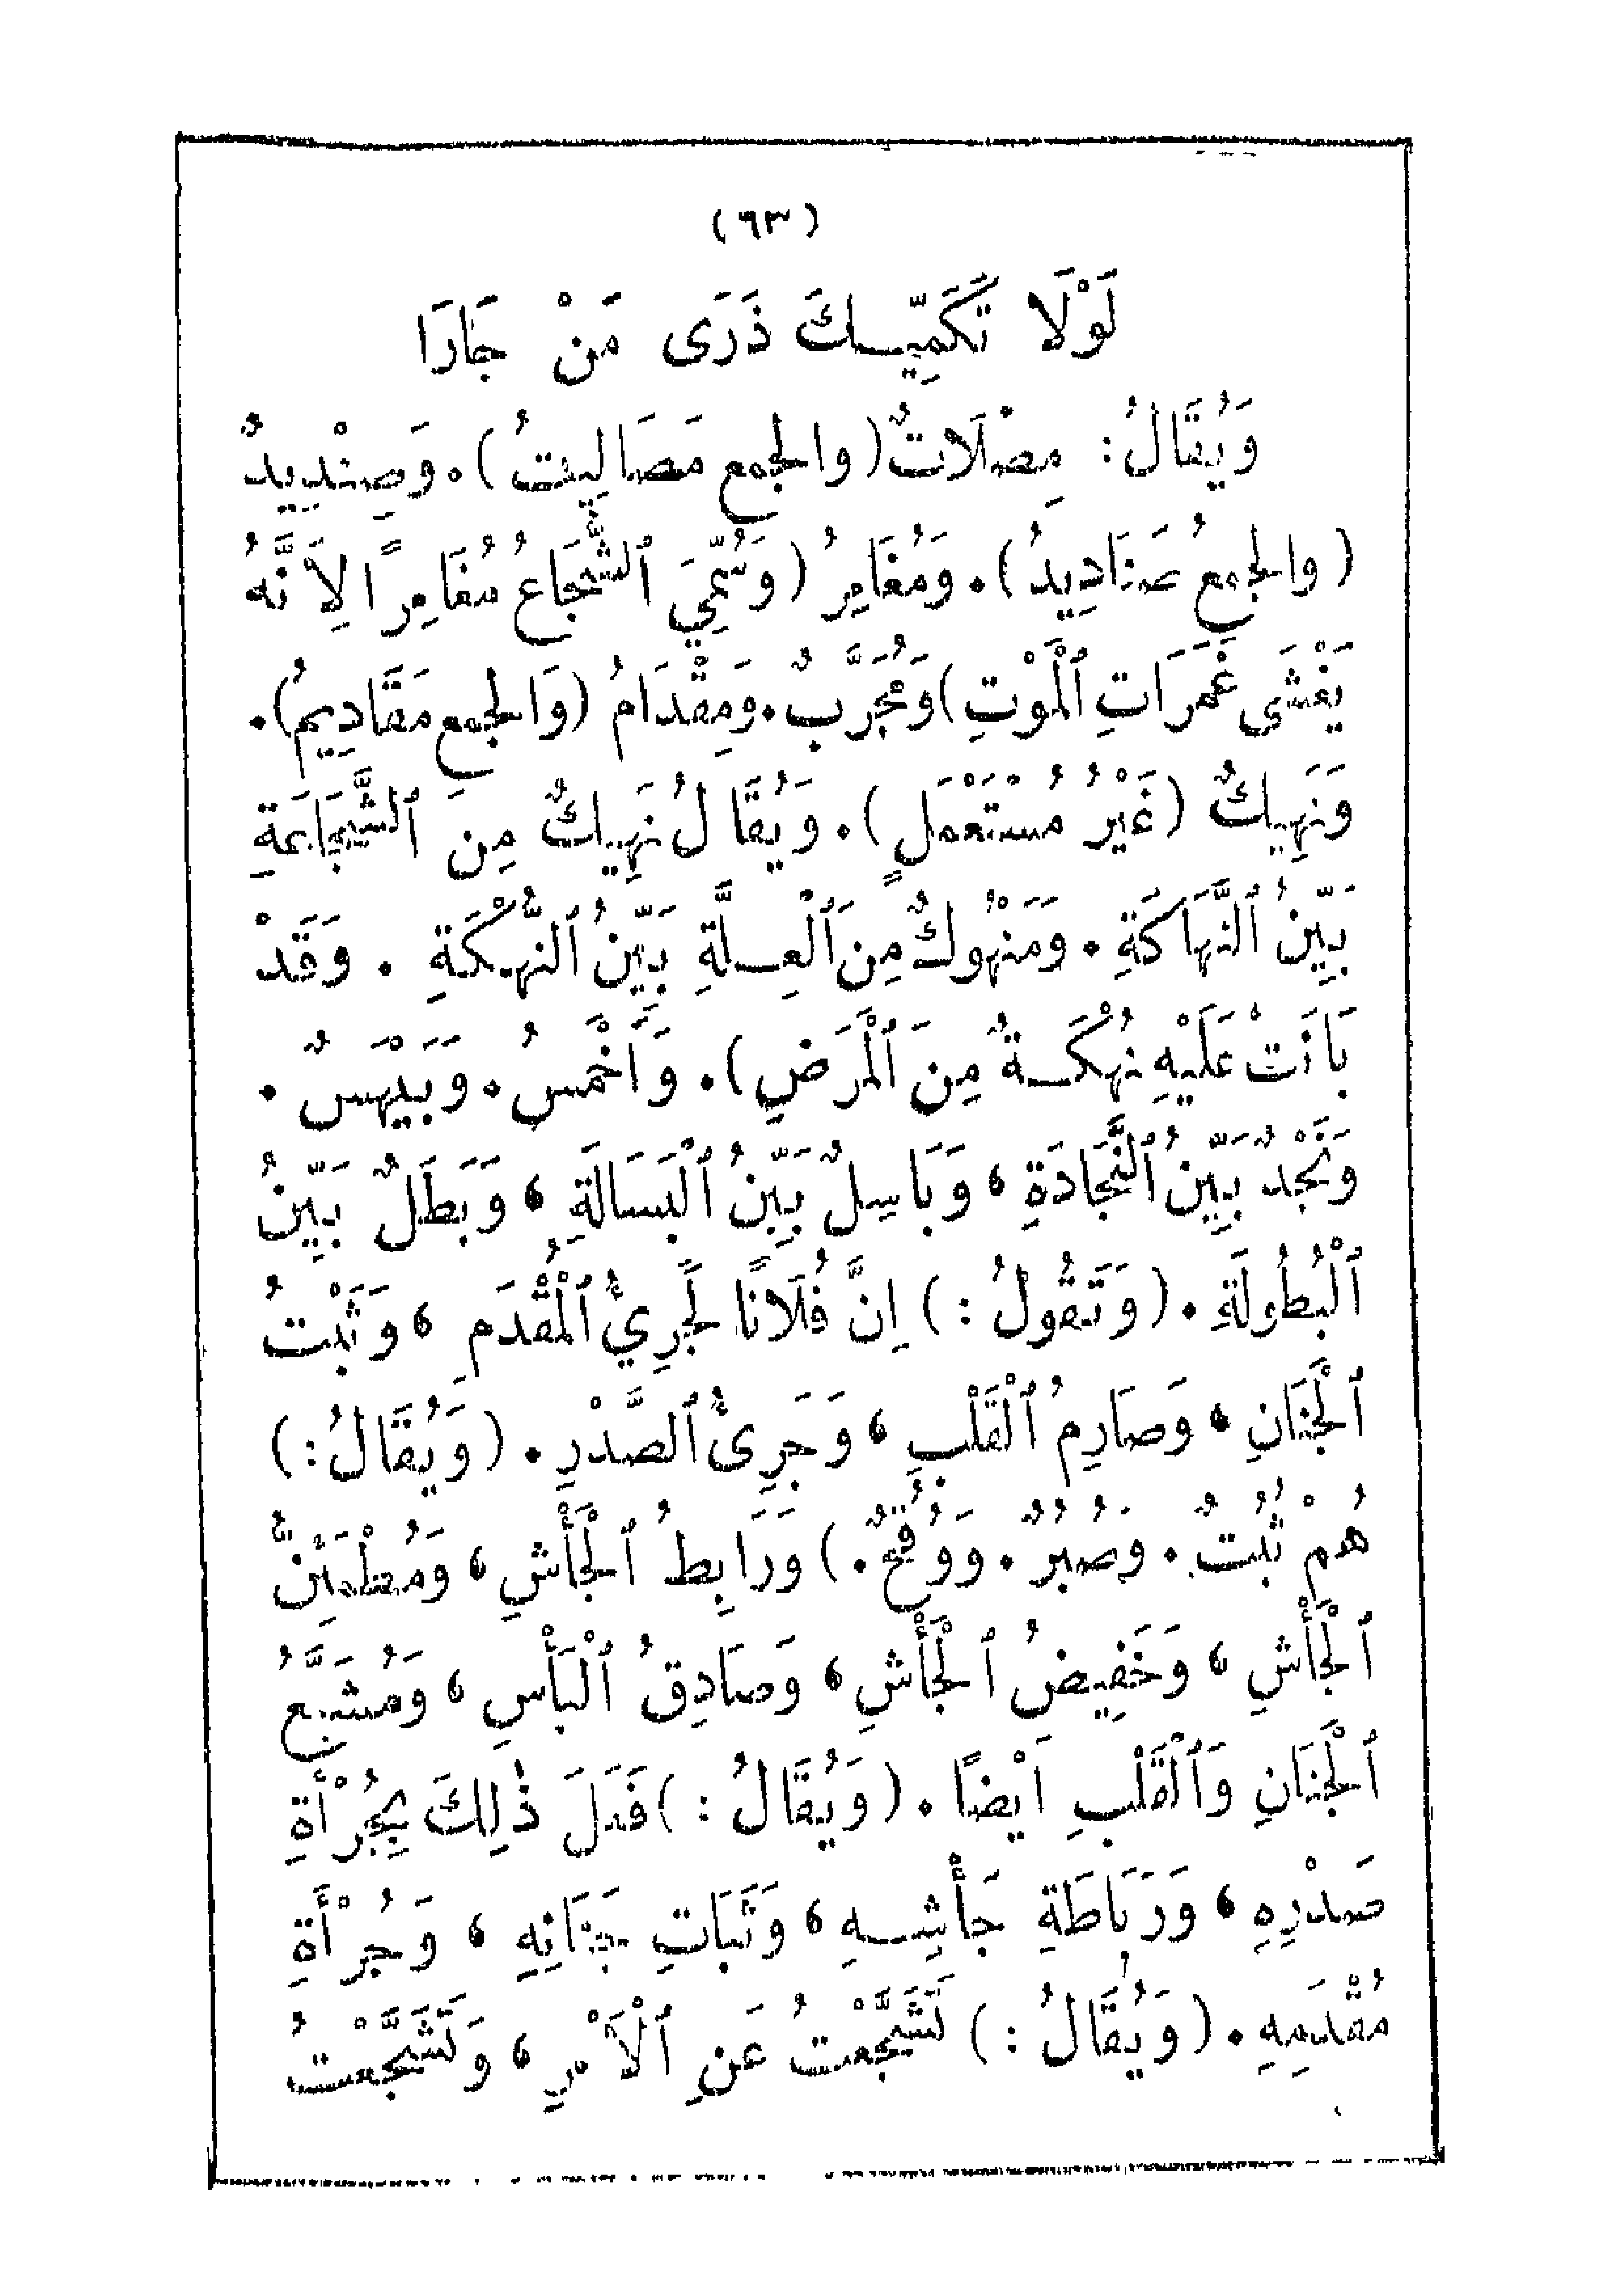 (٦٣)
لَوْلَا تَكَمِّيكَ ذَرَى مَنْ جَارَا
وَيُقَالُ: مِصْلَاتٌ (والجمع مَصَالِيتُ). وَصِنْدِيدٌ
(والجمعُ صَنَادِيدُ). وَمُغَامِرُ (وَسُمِّيَ ٱلشُّجَاعُ مُغَامِرًا لِاَنَّهُ
يَغْشَى غَمَرَاتِ ٱلْمَوْتِ) وَمُجَرَّبٌ. وَمِقْدَامُ (وَالجمعِ مَقَادِيمُ).
وَنَهِيكٌ (غَيْرُ مُسْتَعْمَلٍ). وَيُقَالُ نَهِيكٌ مِنَ ٱلشَّجَاعَةِ
بَيِّنُ ٱلنَّهَاكَةِ. وَمَنْهُوكٌ مِنَ ٱلْعِلَّةِ بَيِّنُ ٱلنَّهْكَةِ. وَقَدْ
بَانَتْ عَلَيْهِ نُهْكَةٌ مِنَ ٱلْمَرَضِ). وَأَحْمَسُ. وَبَيْهَسٌ.
وَنَجْدٌ بَيِّنُ ٱلنَّجَادَةِ، وَبَاسِلٌ بَيِّنُ ٱلْبَسَالَةِ، وَبَطَلٌ بَيِّنُ
ٱلْبُطُولَةِ. (وَتَقُولُ:) اِنَّ فُلَانًا لَجَرِيُّ ٱلْمُقْدَمِ، وَثَبْتُ
ٱلْجَنَانِ، وَصَارِمُ ٱلْقَلْبِ، وَجَرِىُّ ٱلصَّدْرِ. (وَيُقَالُ:)
هُمْ ثُبُتٌ. وَصُبُرٌ. وَوُقُحٌ.) وَرَابِطُ ٱلْجَأْشِ، وَمُطْمَئِنُّ
ٱلْجَأْشِ، وَخَفِيضُ ٱلْجَأْشِ، وَصَادِقُ ٱلْبَأْسِ، وَمُشَيَّعُ
ٱلْجَنَانِ وَٱلْقَلْبِ اَيْضًا. (وَيُقَالُ:) فَعَلَ ذٰلِكَ بِجُرْأَةِ
صَدْرِهِ، وَرَبَاطَةِ جَأْشِهِ، وَثَبَاتِ جَنَانِهِ، وَجُرْأَةِ
مُقْدَمِهِ. (وَيُقَالُ:) تَشَجَّعْتُ عَنِ ٱلْأَمْرِ، وَتَشَجَّعْتُ